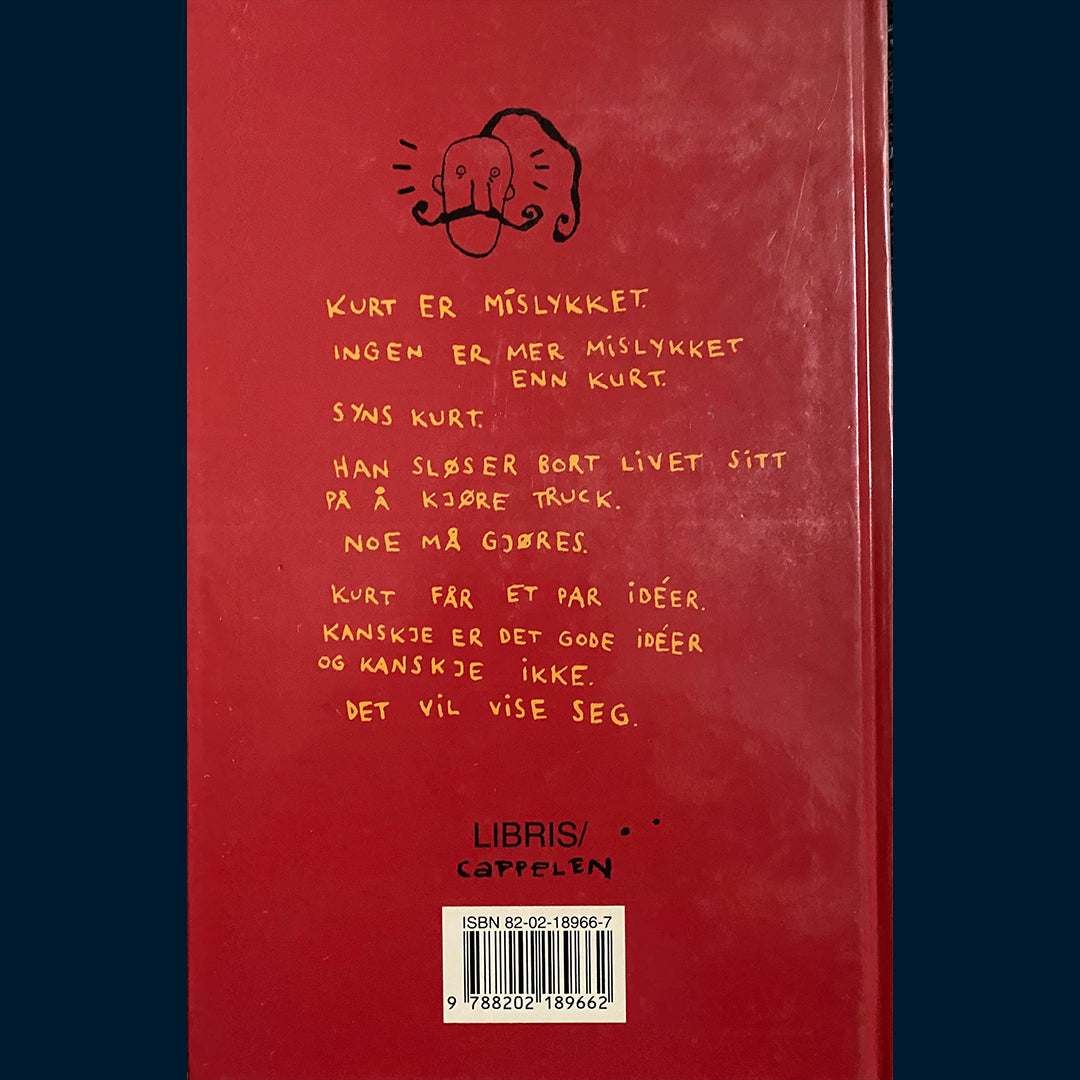 KURT ER MISLYKKET.
INGEN ER MER MISLYKKET
ENN KURT.
SYNS KURT.
HAN SLØSER BORT LIVET SITT
PÅ Å KJØRE TRUCK.
NOE MÅ GJØRES.
KURT FÅR ET PAR IDÉER.
KANSKJE ER DET GODE IDÉER
OG KANSKJE IKKE.
DET VIL VISE SEG.
LIBRIS/
CAPPELEN
ISBN 82-02-18966-7
9 788202 189662